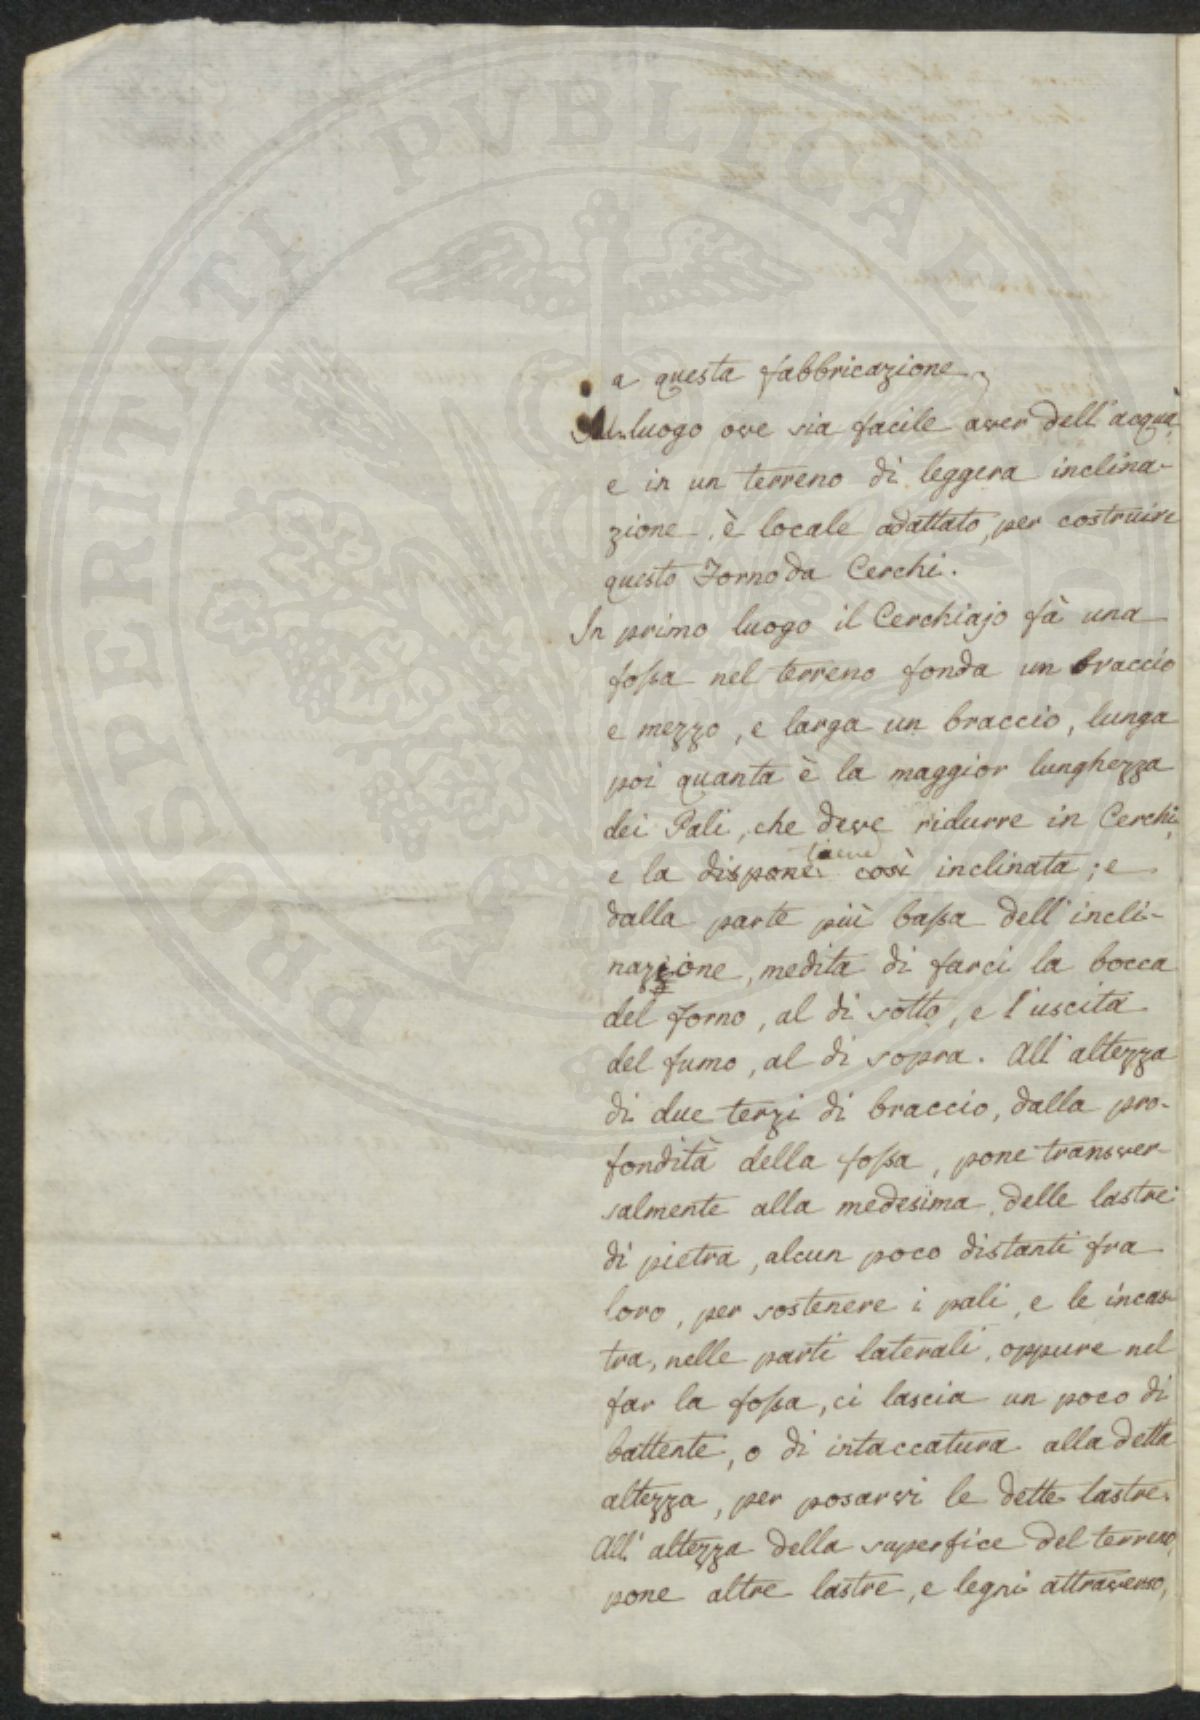 PROSPERITATI PUBLICAE AUGENDAE
a questa fabbricazione.
Un luogo ove sia facile aver dell'acqua,
e in un terreno di leggera inclina-
zione, è locale adattato, per costruire
questo Forno da Cerchi.
In primo luogo il Cerchiajo fà una
fossa nel terreno fonda un braccio
e mezzo, e larga un braccio, lunga
poi quanta è la maggior lunghezza
dei Pali, che deve ridurre in Cerchi,
tiene
e la dispone così inclinata; e
dalla parte più bassa dell'incli-
nazione, medita di farci la bocca
del Forno, al di sotto, e l'uscita
del fumo, al di sopra. All'altezza
di due terzi di braccio, dalla pro-
fondità della fossa, pone transver-
salmente alla medesima, delle lastre
di pietra, alcun poco distanti fra
loro, per sostenere i pali, e le incas-
tra, nelle parti laterali, oppure nel
far la fossa, ci lascia un poco di
battente, o di intaccatura alla detta
altezza, per posarvi le dette lastre.
All'altezza della superfice del terreno,
pone altre lastre, e legni attraverso,